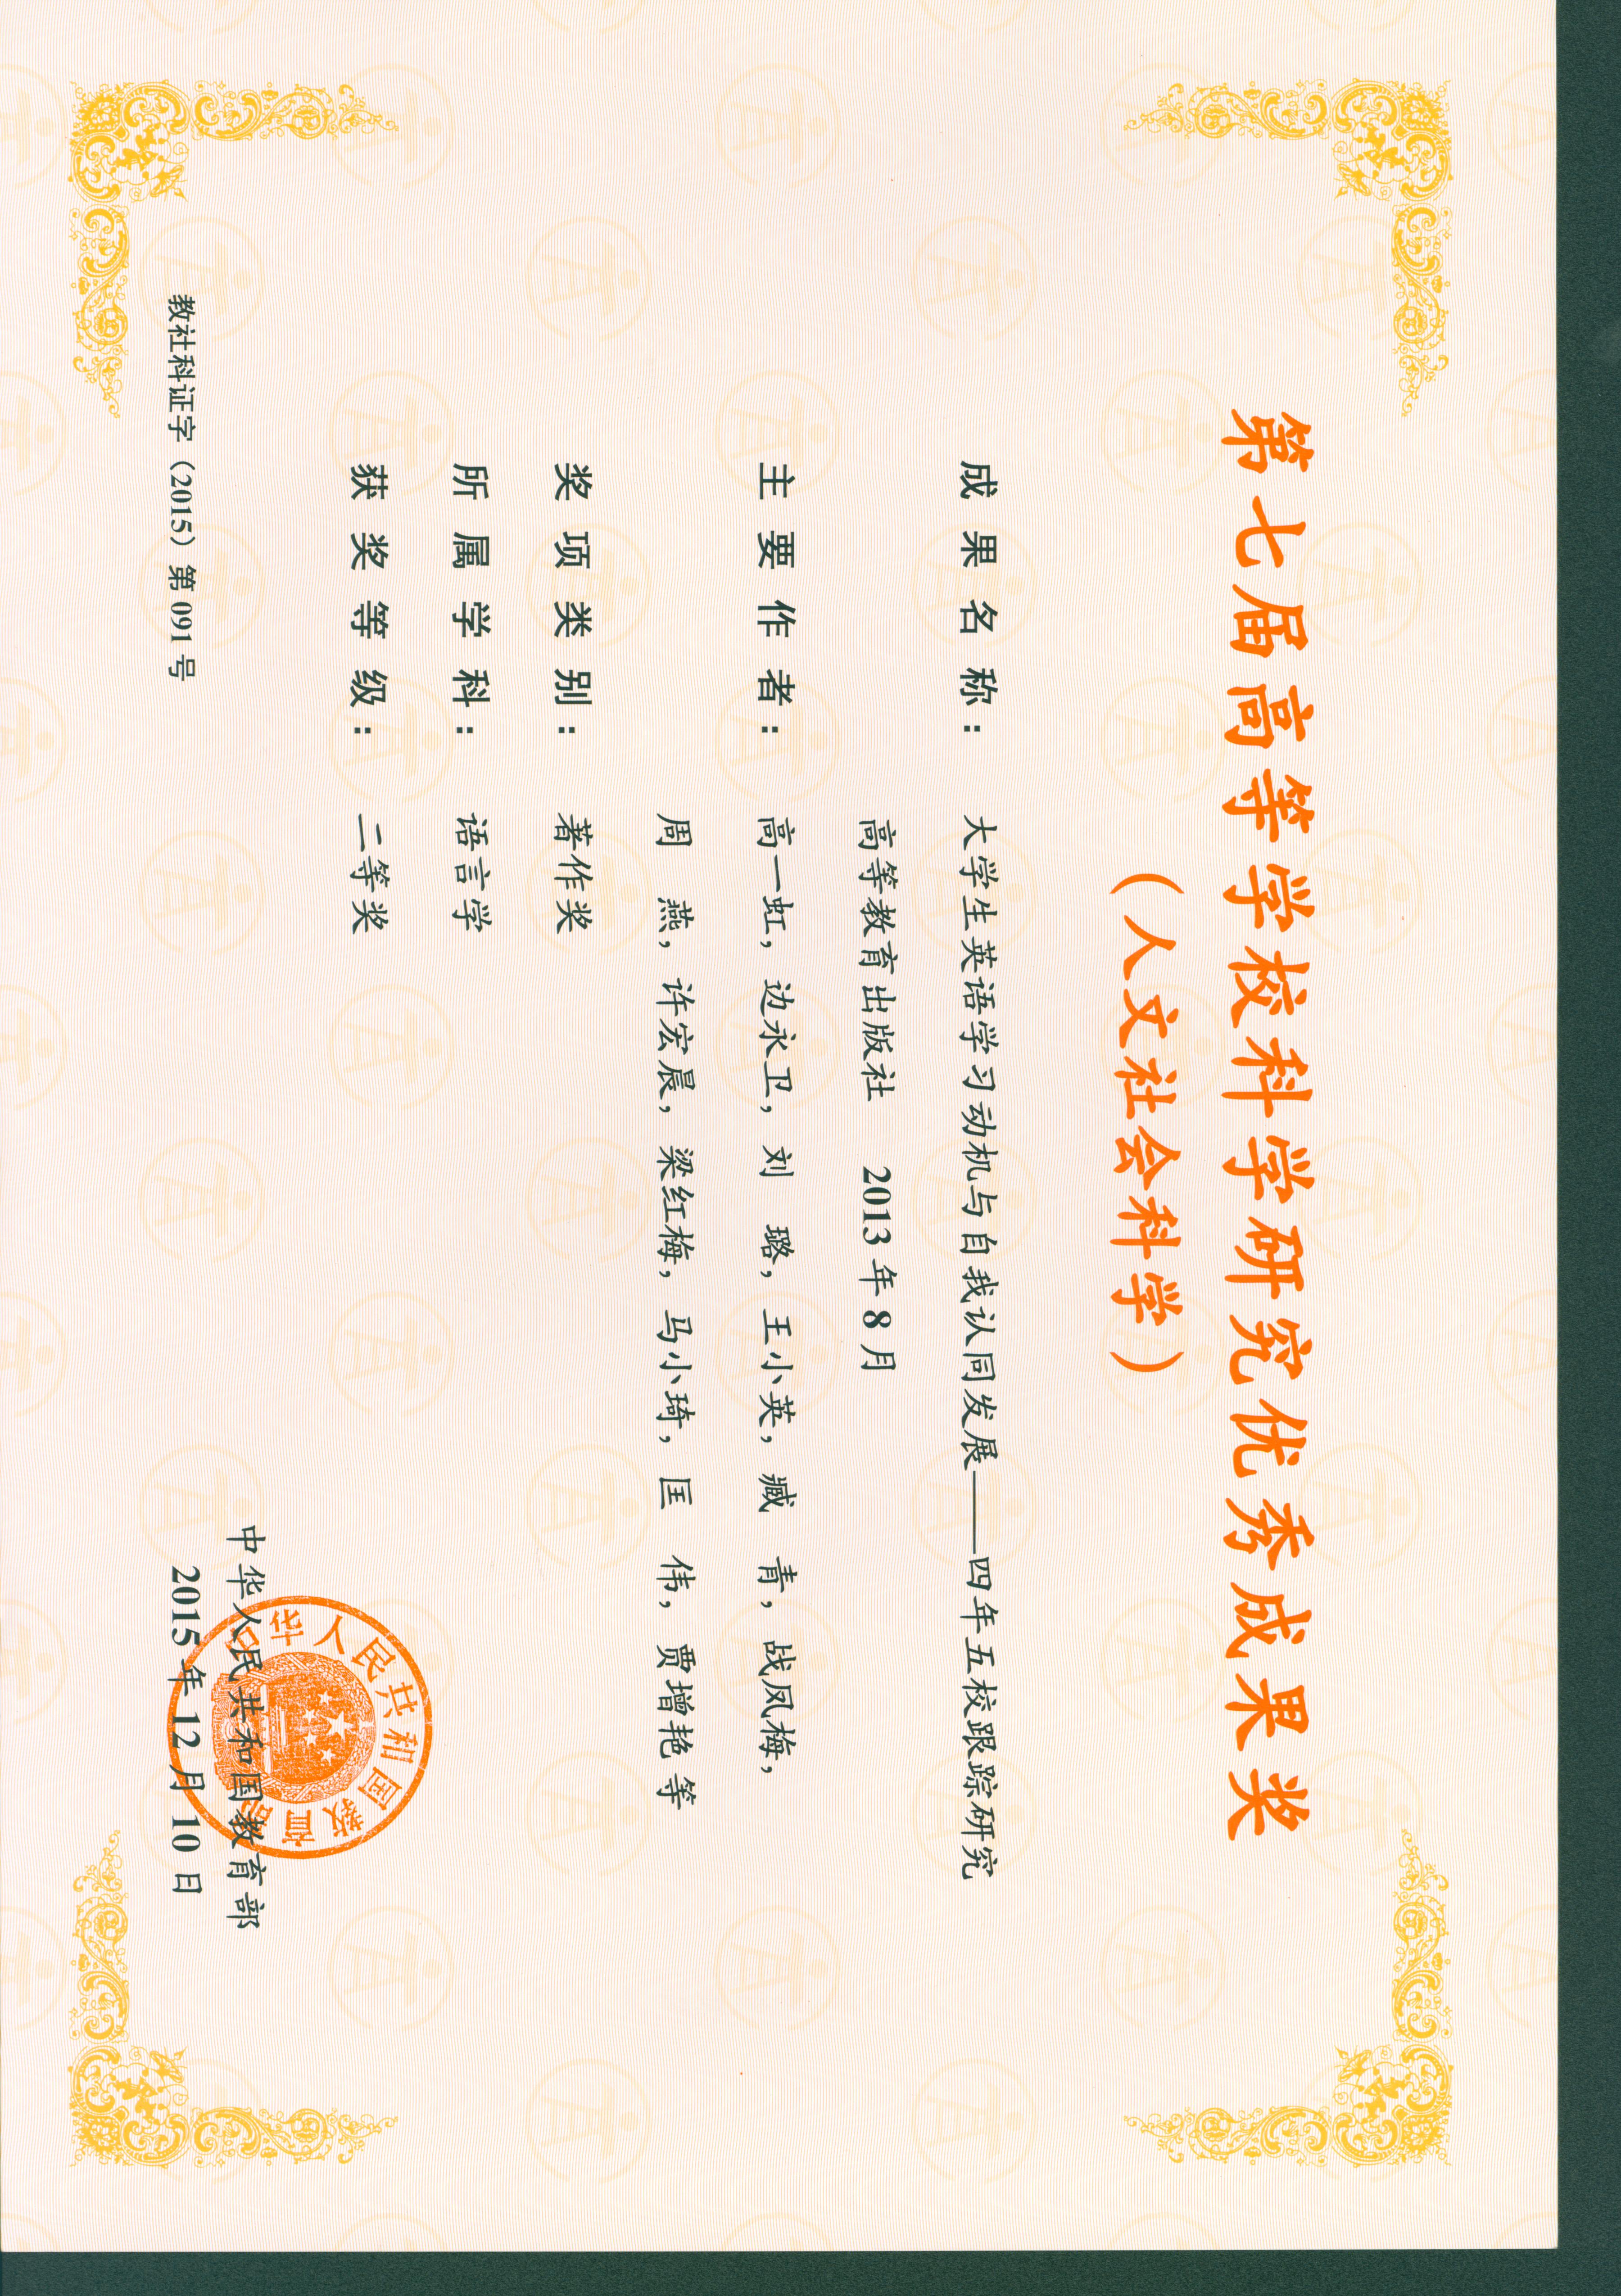 第七届高等学校科学研究优秀成果奖
（人文社会科学）
成果名称： 大学生英语学习动机与自我认同发展——四年五校跟踪研究
高等教育出版社 2013年8月
主要作者： 高一虹，边永卫，刘 璐，王小英，臧 青，战凤梅，
周 燕，许宏晨，梁红梅，马小琦，匡 伟，贾增艳等
奖项类别： 著作奖
所属学科： 语言学
获奖等级： 二等奖
中华人民共和国教育部
教社科证字（2015）第091号
2015年12月10日
中华人民共和国教育部